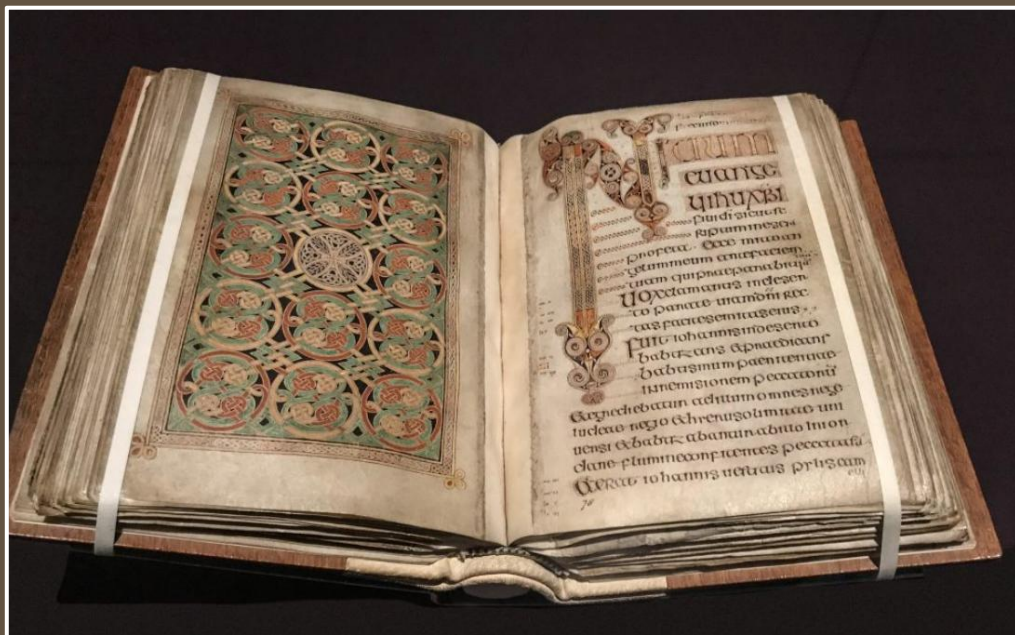 INITIUM
euange
lii ihu xpi
fili di sicut
profeta ecce mitto an
gelum meum ante faciem
tuam qui praeparabit
uox clamantis in deser
to parate uiam dni rec
tas facite semitas eius
fuit iohannis in deserto
babtizans & praedicans
babtismum paenitentiae
in remisionem peccatorum
& egrediebatur ad illum omnes
iudeae regio & hierusolimitae uni
uersi & babtizabantur ab illo in ior
dane flumine confitentes peccata sua
& erat iohannis uestitus pylis cam
eli